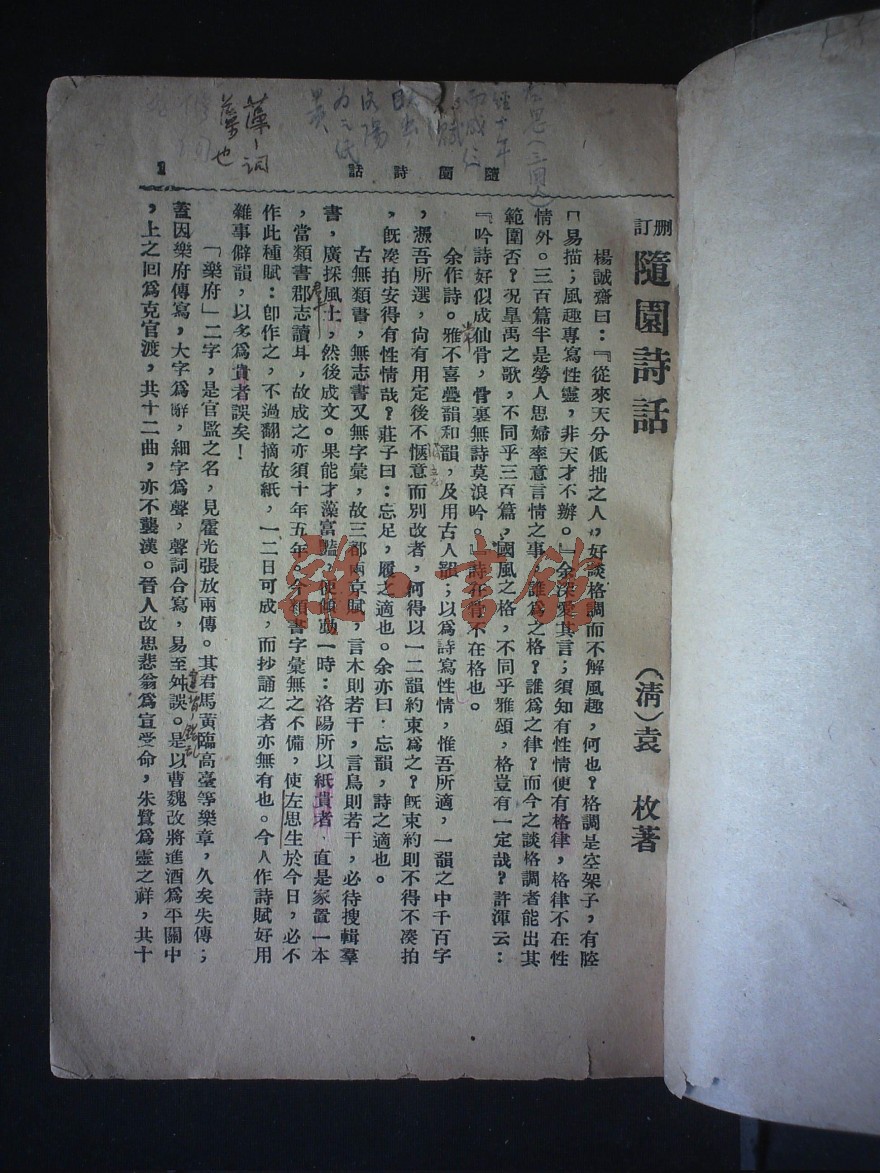 隨園詩話
1
刪訂 隨園詩話 (清)袁 枚著
楊誠齋曰：『從來天分低拙之人，好談格調而不解風趣，何也？格調是空架子，有腔
口易描；風趣專寫性靈，非天才不辦。』余深愛其言；須知有性情便有格律，格律不在性
情外。三百篇半是勞人思婦率意言情之事，誰爲之格？誰爲之律？而今之談格調者能出其
範圍否？況皐禹之歌，不同乎三百篇，國風之格，不同乎雅頌，格豈有一定哉？許渾云：
『吟詩好似成仙骨，骨裏無詩莫浪吟。』詩在骨不在格也。
余作詩。雅不喜疊韻和韻，及用古人韻；以爲詩寫性情，惟吾所適，一韻之中千百字
，憑吾所選，尙有用定後不愜意而別改者，何得以一二韻約束爲之？旣束約則不得不湊拍
，旣湊拍安得有性情哉？莊子曰：忘足，履之適也。余亦曰：忘韻，詩之適也。
古無類書，無志書又無字彙，故三都兩京賦，言木則若干，言鳥則若干，必待搜輯羣
書，廣採風土，然後成文。果能才藻富豔，便傾動一時：洛陽所以紙貴者，直是家置一本
，當類書郡志讀耳，故成之亦須十年五年。今類書字彙無之不備，使左思生於今日，必不
作此種賦：卽作之，不過翻摘故紙，一二日可成，而抄誦之者亦無有也。今人作詩賦好用
雜事僻韻，以多爲貴者誤矣！
「樂府」二字，是官監之名，見霍光張放兩傳。其君馬黃臨高臺等樂章，久矣失傳；
蓋因樂府傳寫，大字爲辭，細字爲聲，聲詞合寫，易至舛誤。是以曹魏改將進酒爲平關中
，上之回爲克官渡，共十二曲，亦不襲漢。晉人改思悲翁爲宣受命，朱鷺爲靈之祥，共十
左思（三国人）
经十年
而成
都賦
洛陽
为之纸
貴
藻
也